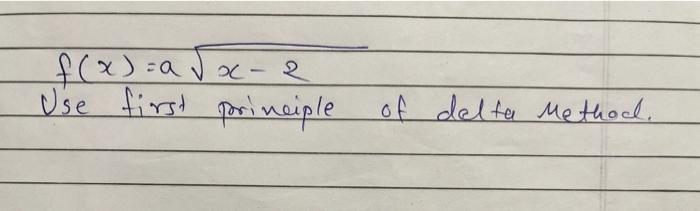 f(x) = a √x - 2
Use first principle of delta Method.